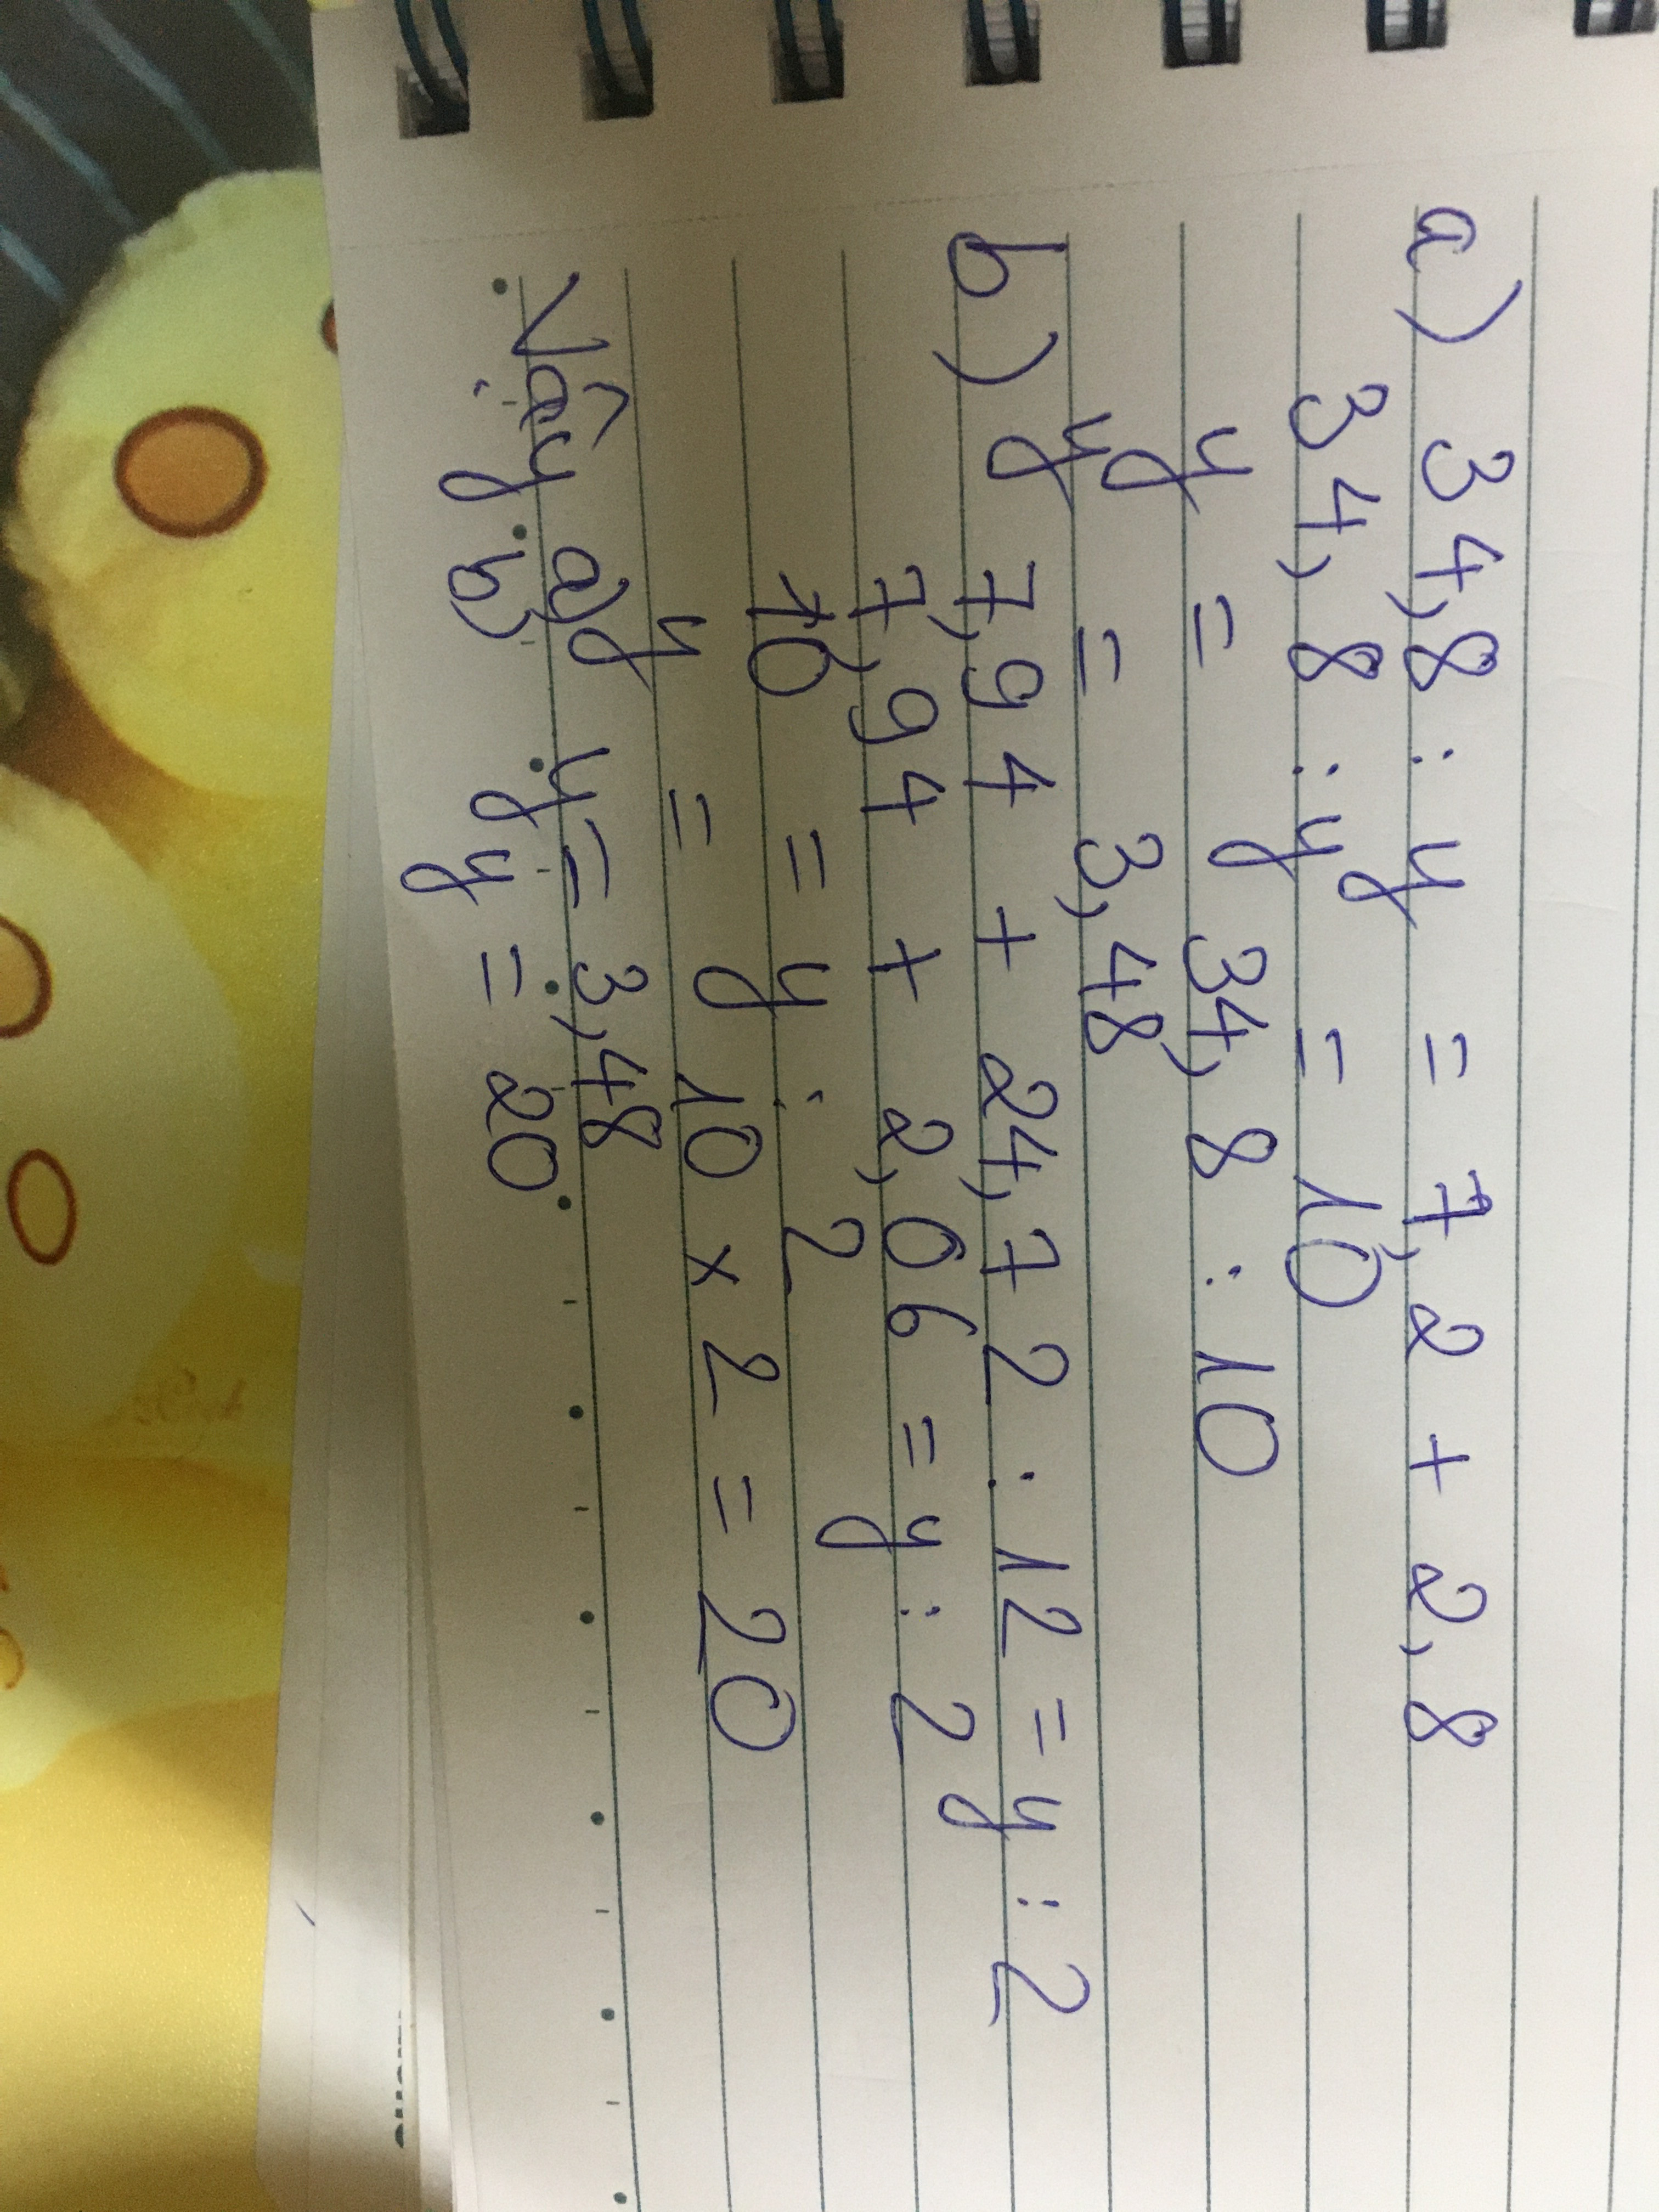 a) 34,8 : y = 7,2 + 2,8
34,8 : y = 10
y = 34,8 : 10
y = 3,48
b) 7,94 + 24,72 : 12 = y : 2
7,94 + 2,06 = y : 2
10 = y : 2
y = 10 x 2 = 20
Vậy a) y = 3,48
b) y = 20